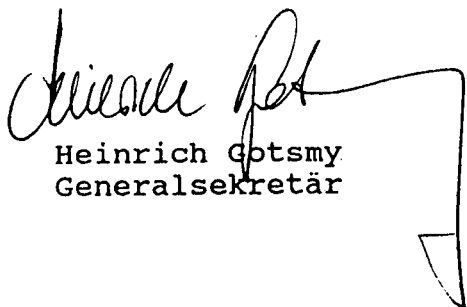 Heinrich Gotsmy
Generalsekretär